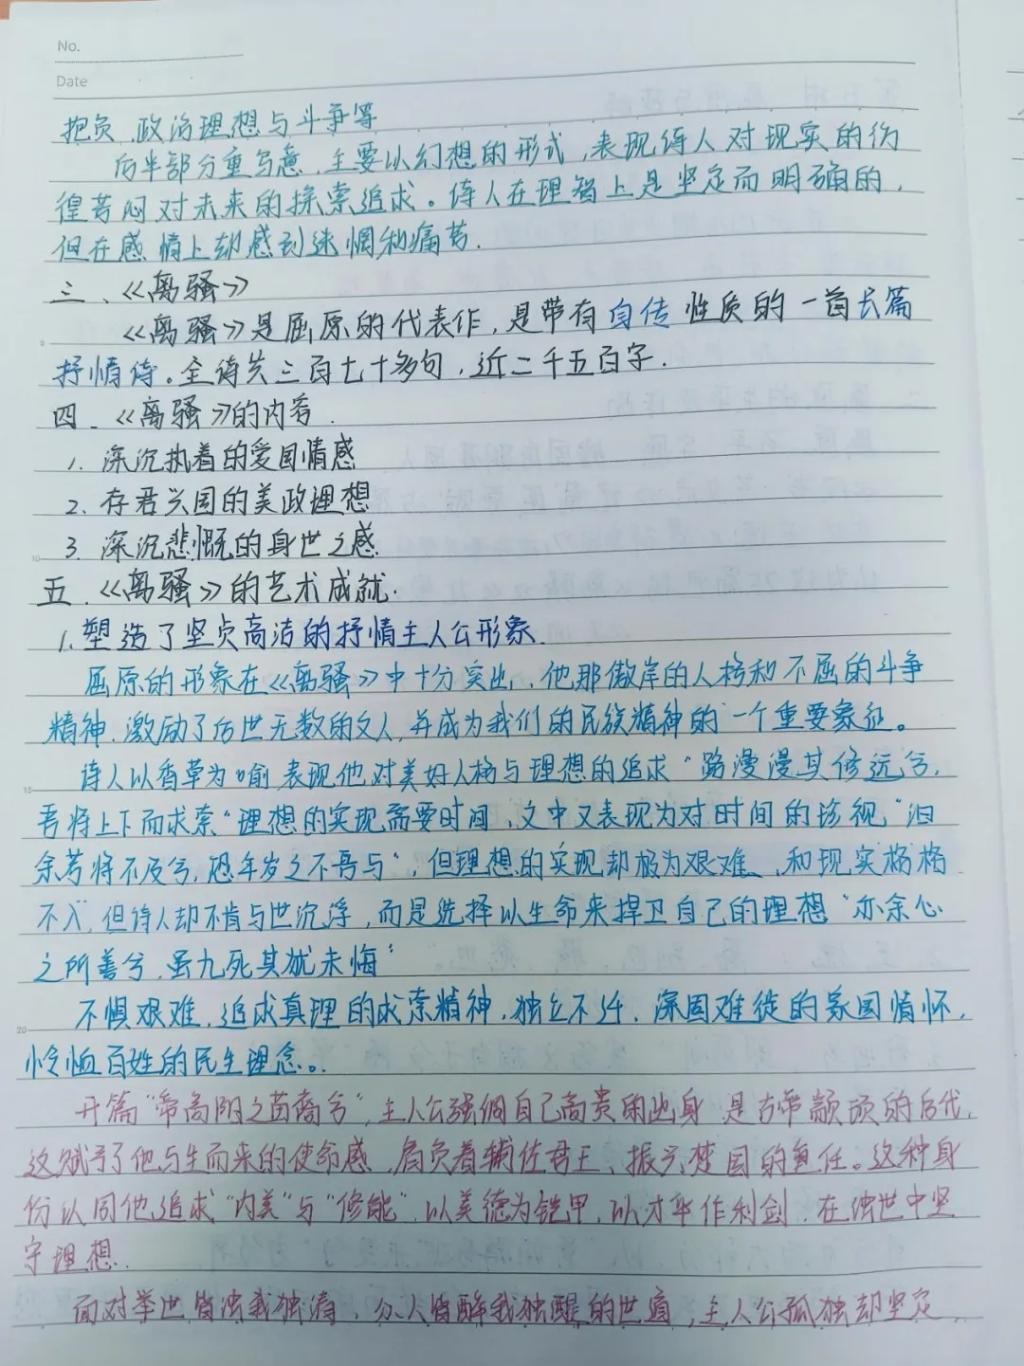 No.
Date
抱负、政治理想与斗争等
后半部分重写意，主要以幻想的形式，表现诗人对现实的彷
徨苦闷对未来的探索追求。诗人在理智上是坚定而明确的，
但在感情上却感到迷惘和痛苦.
三、《离骚》
《离骚》是屈原的代表作，是带有自传性质的一首长篇
抒情诗。全诗共三百七十多句，近二千五百字.
四、《离骚》的内容.
1. 深沉执着的爱国情感
2. 存君兴国的美政理想
3. 深沉悲慨的身世之感
五、《离骚》的艺术成就.
1. 塑造了坚贞高洁的抒情主人公形象.
屈原的形象在《离骚》中十分突出，他那傲岸的人格和不屈的斗争
精神，激励了后世无数的文人，并成为我们的民族精神的一个重要象征。
诗人以香草为喻，表现他对美好人格与理想的追求“路漫漫其修远兮，
吾将上下而求索”理想的实现需要时间，文中又表现为对时间的珍视“汩
余若将不及兮，恐年岁之不吾与”，但理想的实现却极为艰难，和现实格格
不入，但诗人却不肯与世沉浮，而是选择以生命来捍卫自己的理想“亦余心
之所善兮，虽九死其犹未悔”
不惧艰难，追求真理的求索精神，独立不迁，深固难徙的家国情怀，
怜恤百姓的民生理念。
开篇“帝高阳之苗裔兮”，主人公强调自己高贵的出身，是古帝颛顼的后代，
这赋予了他与生而来的使命感，肩负着辅佐君王、振兴楚国的重任。这种身
份认同他追求“内美”与“修能”，以美德为铠甲，以才华作利剑，在浊世中坚
守理想.
面对举世皆浊我独清，众人皆醉我独醒的世道，主人公孤独却坚定，